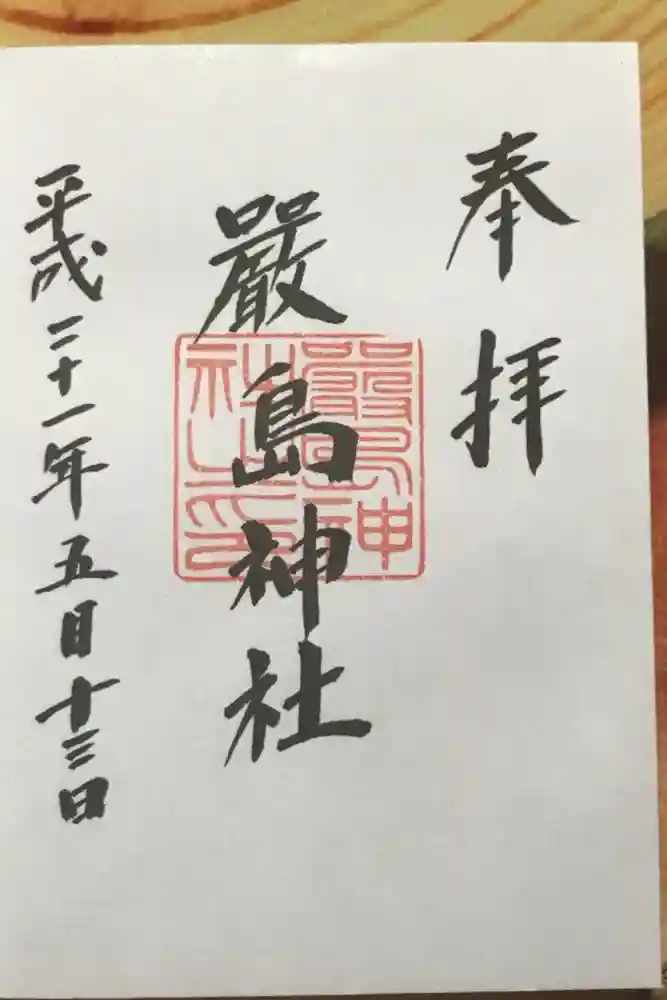 奉拝
嚴島神社
嚴島神社之印
平成二十一年五月十三日